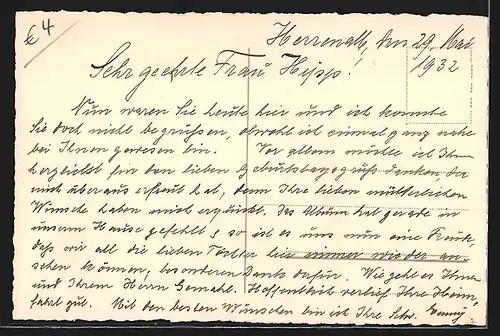 €4
Herrenalb, den 29. Mai
1932
Sehr geehrte Frau Hipp!
Nun waren Sie heute hier und ich konnte
Sie doch nicht begrüßen, obwohl ich einmal ganz nahe
bei Ihnen gewesen bin. Vor allem möchte ich Ihnen
herzlichst für den lieben Geburtstagsgruß danken, der
mich überaus erfreut hat, denn Ihre lieben mütterlichen
Wünsche haben mich erquickt. Das Album hat gerade in
unserem Hause gefehlt, so ist es uns nun eine Freude,
daß wir all die lieben Töchter hier immer wieder an-
sehen können, besonderen Dank dafür. Wie geht es Ihnen
und Ihrem Herrn Gemahl. Hoffentlich verlief Ihre Heim-
fahrt gut. Mit den besten Wünschen bin ich Ihre Schw.